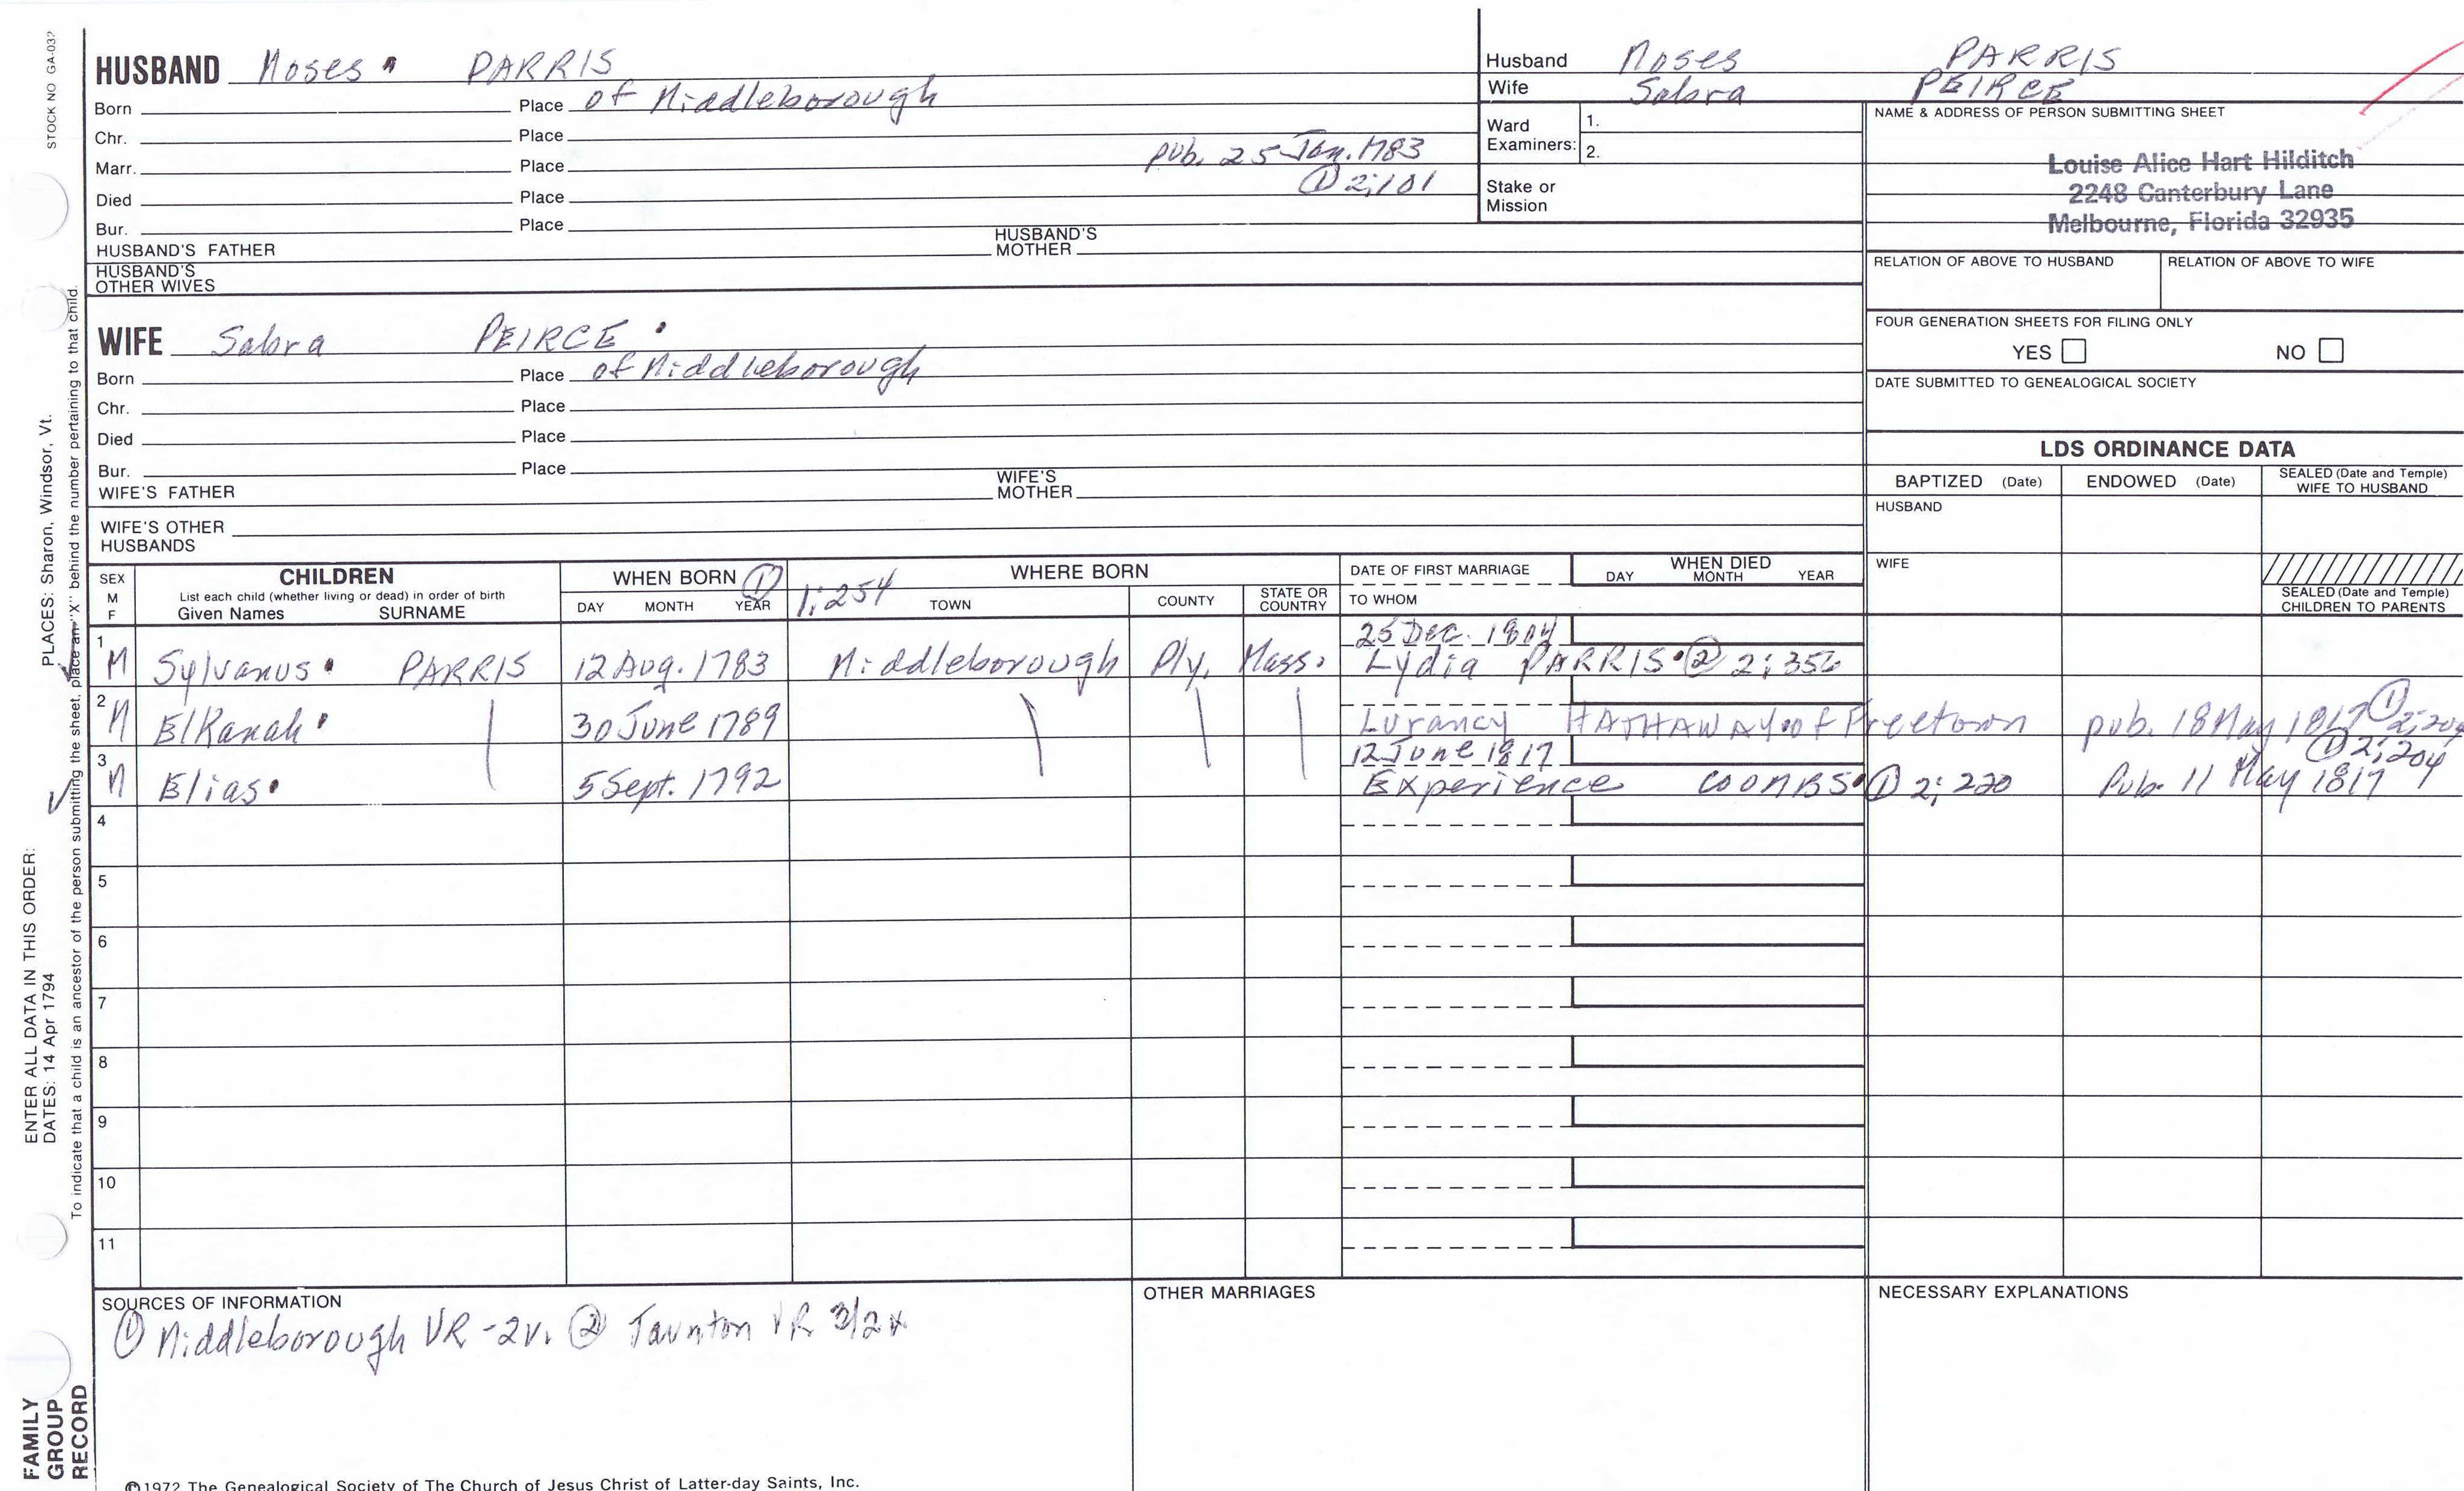 STOCK NO GA-032
HUSBAND Moses PARRIS
Born Place of Middleborough
Chr. Place
Marr. Place pub. 25 Jan. 1783
① 2;101
Died Place
Bur. Place
HUSBAND'S FATHER HUSBAND'S MOTHER
HUSBAND'S OTHER WIVES
Husband Moses PARRIS
Wife Sabra PEIRCE
Ward Examiners: 1.
2.
Stake or Mission
NAME & ADDRESS OF PERSON SUBMITTING SHEET
Louise Alice Hart Hilditch
2248 Canterbury Lane
Melbourne, Florida 32935
RELATION OF ABOVE TO HUSBAND RELATION OF ABOVE TO WIFE
FOUR GENERATION SHEETS FOR FILING ONLY
YES NO
DATE SUBMITTED TO GENEALOGICAL SOCIETY
WIFE Sabra PEIRCE
Born Place of Middleborough
Chr. Place
Died Place
Bur. Place
WIFE'S FATHER WIFE'S MOTHER
WIFE'S OTHER HUSBANDS
LDS ORDINANCE DATA
BAPTIZED (Date) ENDOWED (Date) SEALED (Date and Temple) WIFE TO HUSBAND
HUSBAND
WIFE
SEALED (Date and Temple) CHILDREN TO PARENTS
SEX M F
CHILDREN
List each child (whether living or dead) in order of birth
Given Names SURNAME
WHEN BORN ①
DAY MONTH YEAR
1;254
WHERE BORN
TOWN COUNTY STATE OR COUNTRY
DATE OF FIRST MARRIAGE
TO WHOM
WHEN DIED
DAY MONTH YEAR
25 Dec. 1804
1 M Sylvanus PARRIS 12 Aug. 1783 Middleborough Ply. Mass. Lydia PARRIS ② 2;356
2 M Elkanah 30 June 1789 Lurancy HATHAWAY of Freetown pub. 18 May 1817 ① 2;204
12 June 1817 ① 2;204
3 M Elias 5 Sept. 1792 Experience COOMBS ① 2;220 Pub. 11 May 1817
4
5
6
7
8
9
10
11
SOURCES OF INFORMATION
① Middleborough VR - 2v. ② Taunton VR
OTHER MARRIAGES
NECESSARY EXPLANATIONS
©1972 The Genealogical Society of The Church of Jesus Christ of Latter-day Saints, Inc.
ENTER ALL DATA IN THIS ORDER:
DATES: 14 Apr 1794 PLACES: Sharon, Windsor, Vt.
To indicate that a child is an ancestor of the person submitting the sheet, place an "X" behind the number pertaining to that child.
FAMILY
GROUP
RECORD